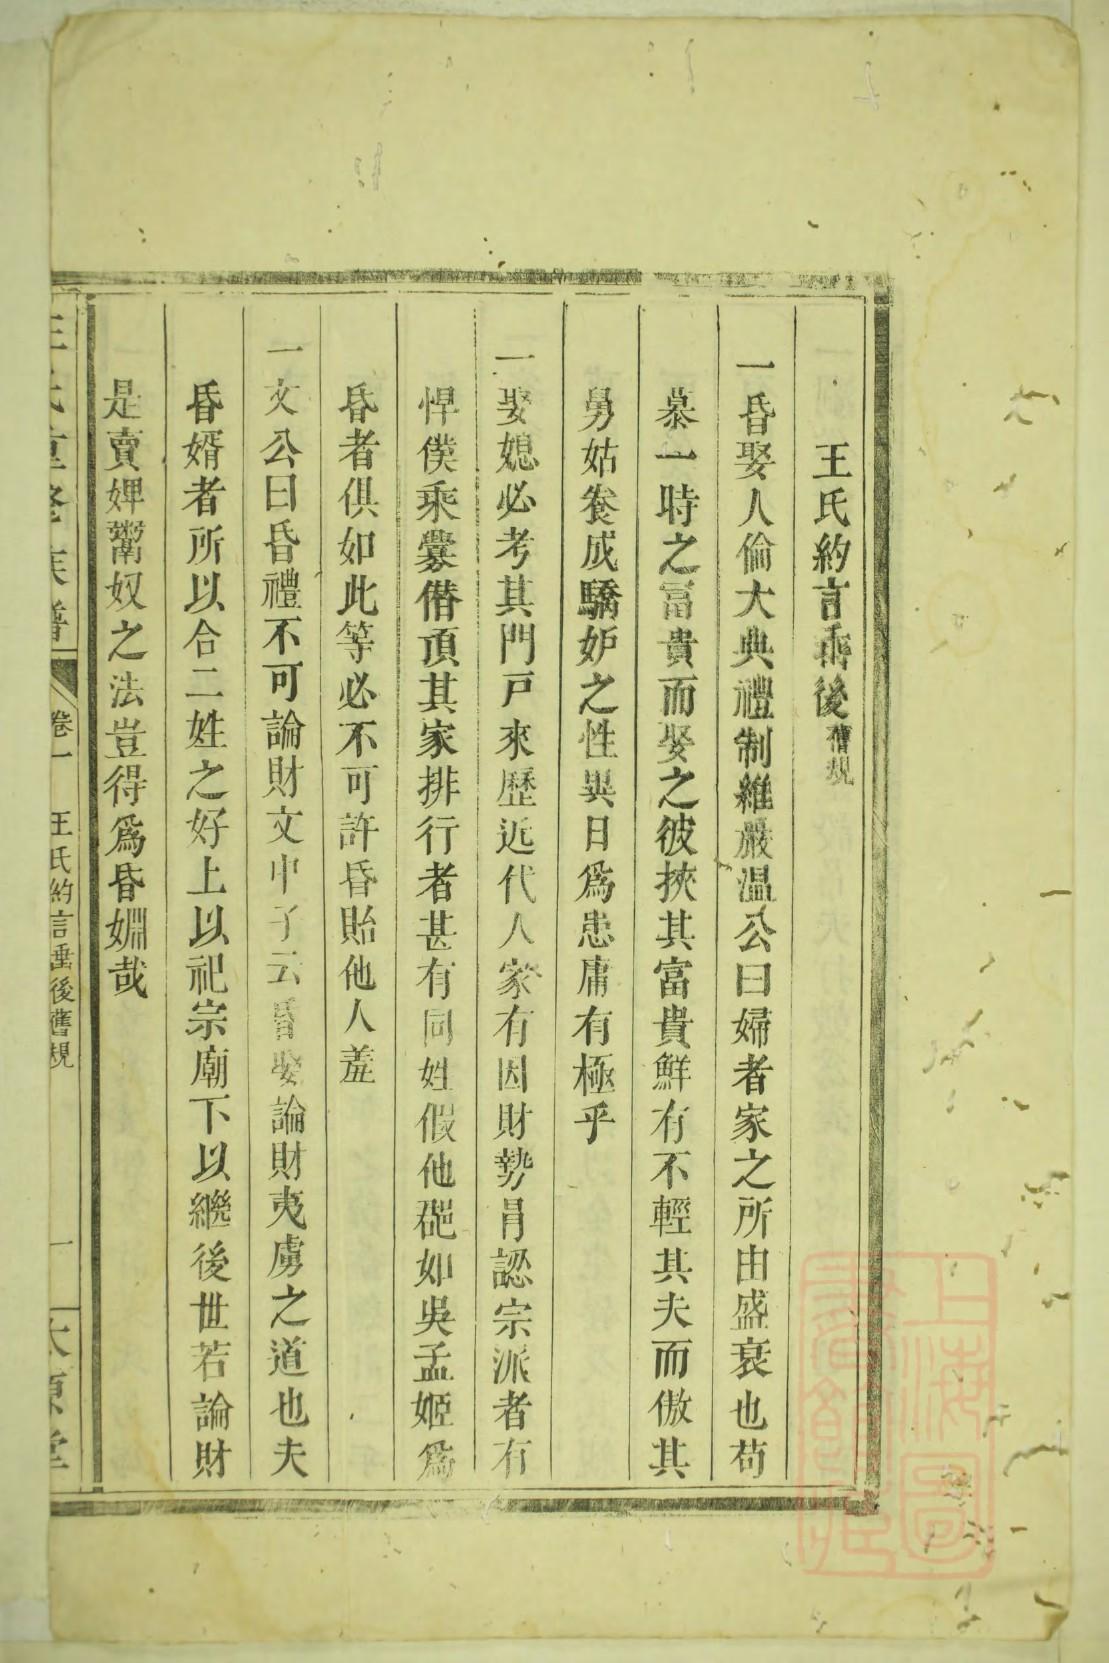 王氏約言垂後舊規
一昏娶人倫大典禮制維嚴温公曰婦者家之所由盛衰也苟
慕一時之富貴而娶之彼挾其富貴鮮有不輕其夫而傲其
舅姑養成驕妒之性異日爲患庸有極乎
一娶媳必考其門戸來歷近代人家有因財勢冐認宗派者有
悍僕乘釁僭頂其家排行者甚有同姓假他如吳孟姬爲
昏者俱如此等必不可許昏貽他人羞
一文公曰昏禮不可論財文中子云昏娶論財夷虜之道也夫
昏婿者所以合二姓之好上以祀宗廟下以繼後世若論財
是賣婢鬻奴之法豈得爲昏婣哉
王氏重修族譜 卷一 王氏約言垂後舊規 一 太原堂
上海圖書館藏